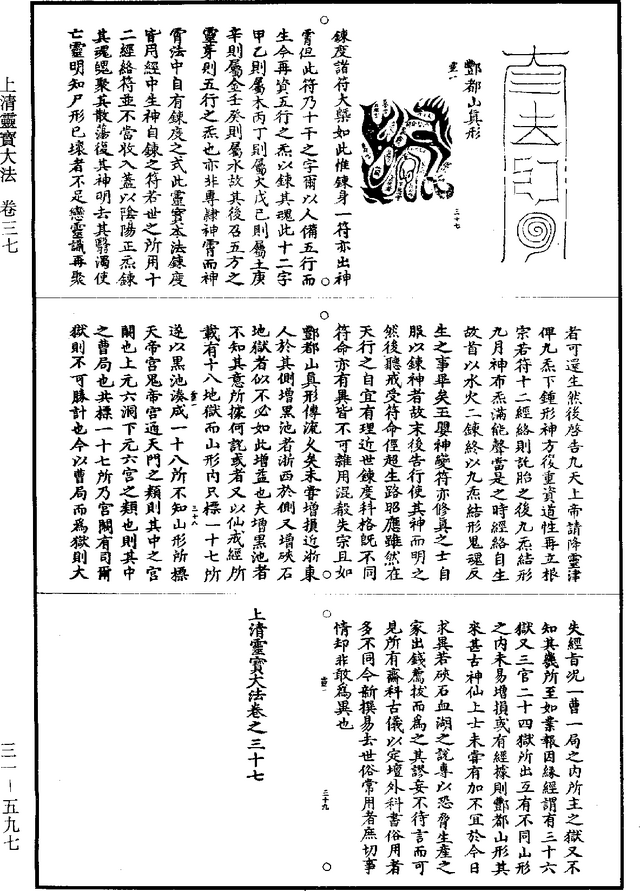 上清靈寶大法 卷三七
三一－五九七
酆都山真形
靈一
三十七
鍊度諸符大槩如此惟鍊身一符亦出神
霄但此符乃十干之字爾以人備五行而
生今再資五行之炁以鍊其魂此十二字
甲乙則屬木丙丁則屬火戊己則屬土庚
辛則屬金壬癸則屬水故其後召五方之
靈芽則五行之炁也亦非專隸神霄而神
霄法中自有鍊度之式此靈寶本法鍊度
皆用經中生神自鍊之符若世之所用十
二經絡符並不當收入蓋以陰陽正炁鍊
其魂魄聚其散蕩復其神明去其翳濁使
亡靈明知尸形已壞者不足戀靈識再聚
者可還生然後啓告九天上帝請降靈津
俾九炁下鍾形神方後重資道性再立根
宗若符十二經絡則託胎之後九炁結形
九月神布炁滿能聲當是之時經絡自生
故首以水火二鍊終以九炁結形鬼魂反
生之事畢矣玉嬰神變符亦修真之士自
服以鍊神者故末後告行使其神而明之
然後聽戒受符命徑超生路昭應雖然在
天行之自宜有理近世鍊度科格既不同
符命亦有異皆不可雜用混殽失宗且如
酆都山真形傳流乆矣未嘗增損近浙東
人於其側增黑池者浙西於側又增硤石
地獄者似不必如此增益也夫增黑池者
不知其意所據何說或者又以仙戒經所
載有十八地獄而山形內只標一十七所
靈一
三十八
遂以黑池湊成一十八所不知山形所標
天帝宮鬼帝宮通天門之類則其中之宮
闕也上元六洞下元六宮之類也則其中
之曹局也共標一十七所乃宮闕有司爾
獄則不可勝計也今以曹局而為獄則大
失經旨况一曹一局之內所主之獄又不
知其幾所至如業報因緣經謂有三十六
獄又三官二十四獄所出互有不同山形
之內未易增損或有經據則酆都山形其
來甚古神仙上士未嘗有加不宜於今日
求異若硤石血湖之說專以恐脅生產之
家出錢薦拔而為之其謬妄不待言而可
見所有齋科古儀以定壇外科書俗用者
多不同今新撰易去世俗常用者庶切事
情却非敢為異也
靈一
三十九
上清靈寶大法卷之三十七